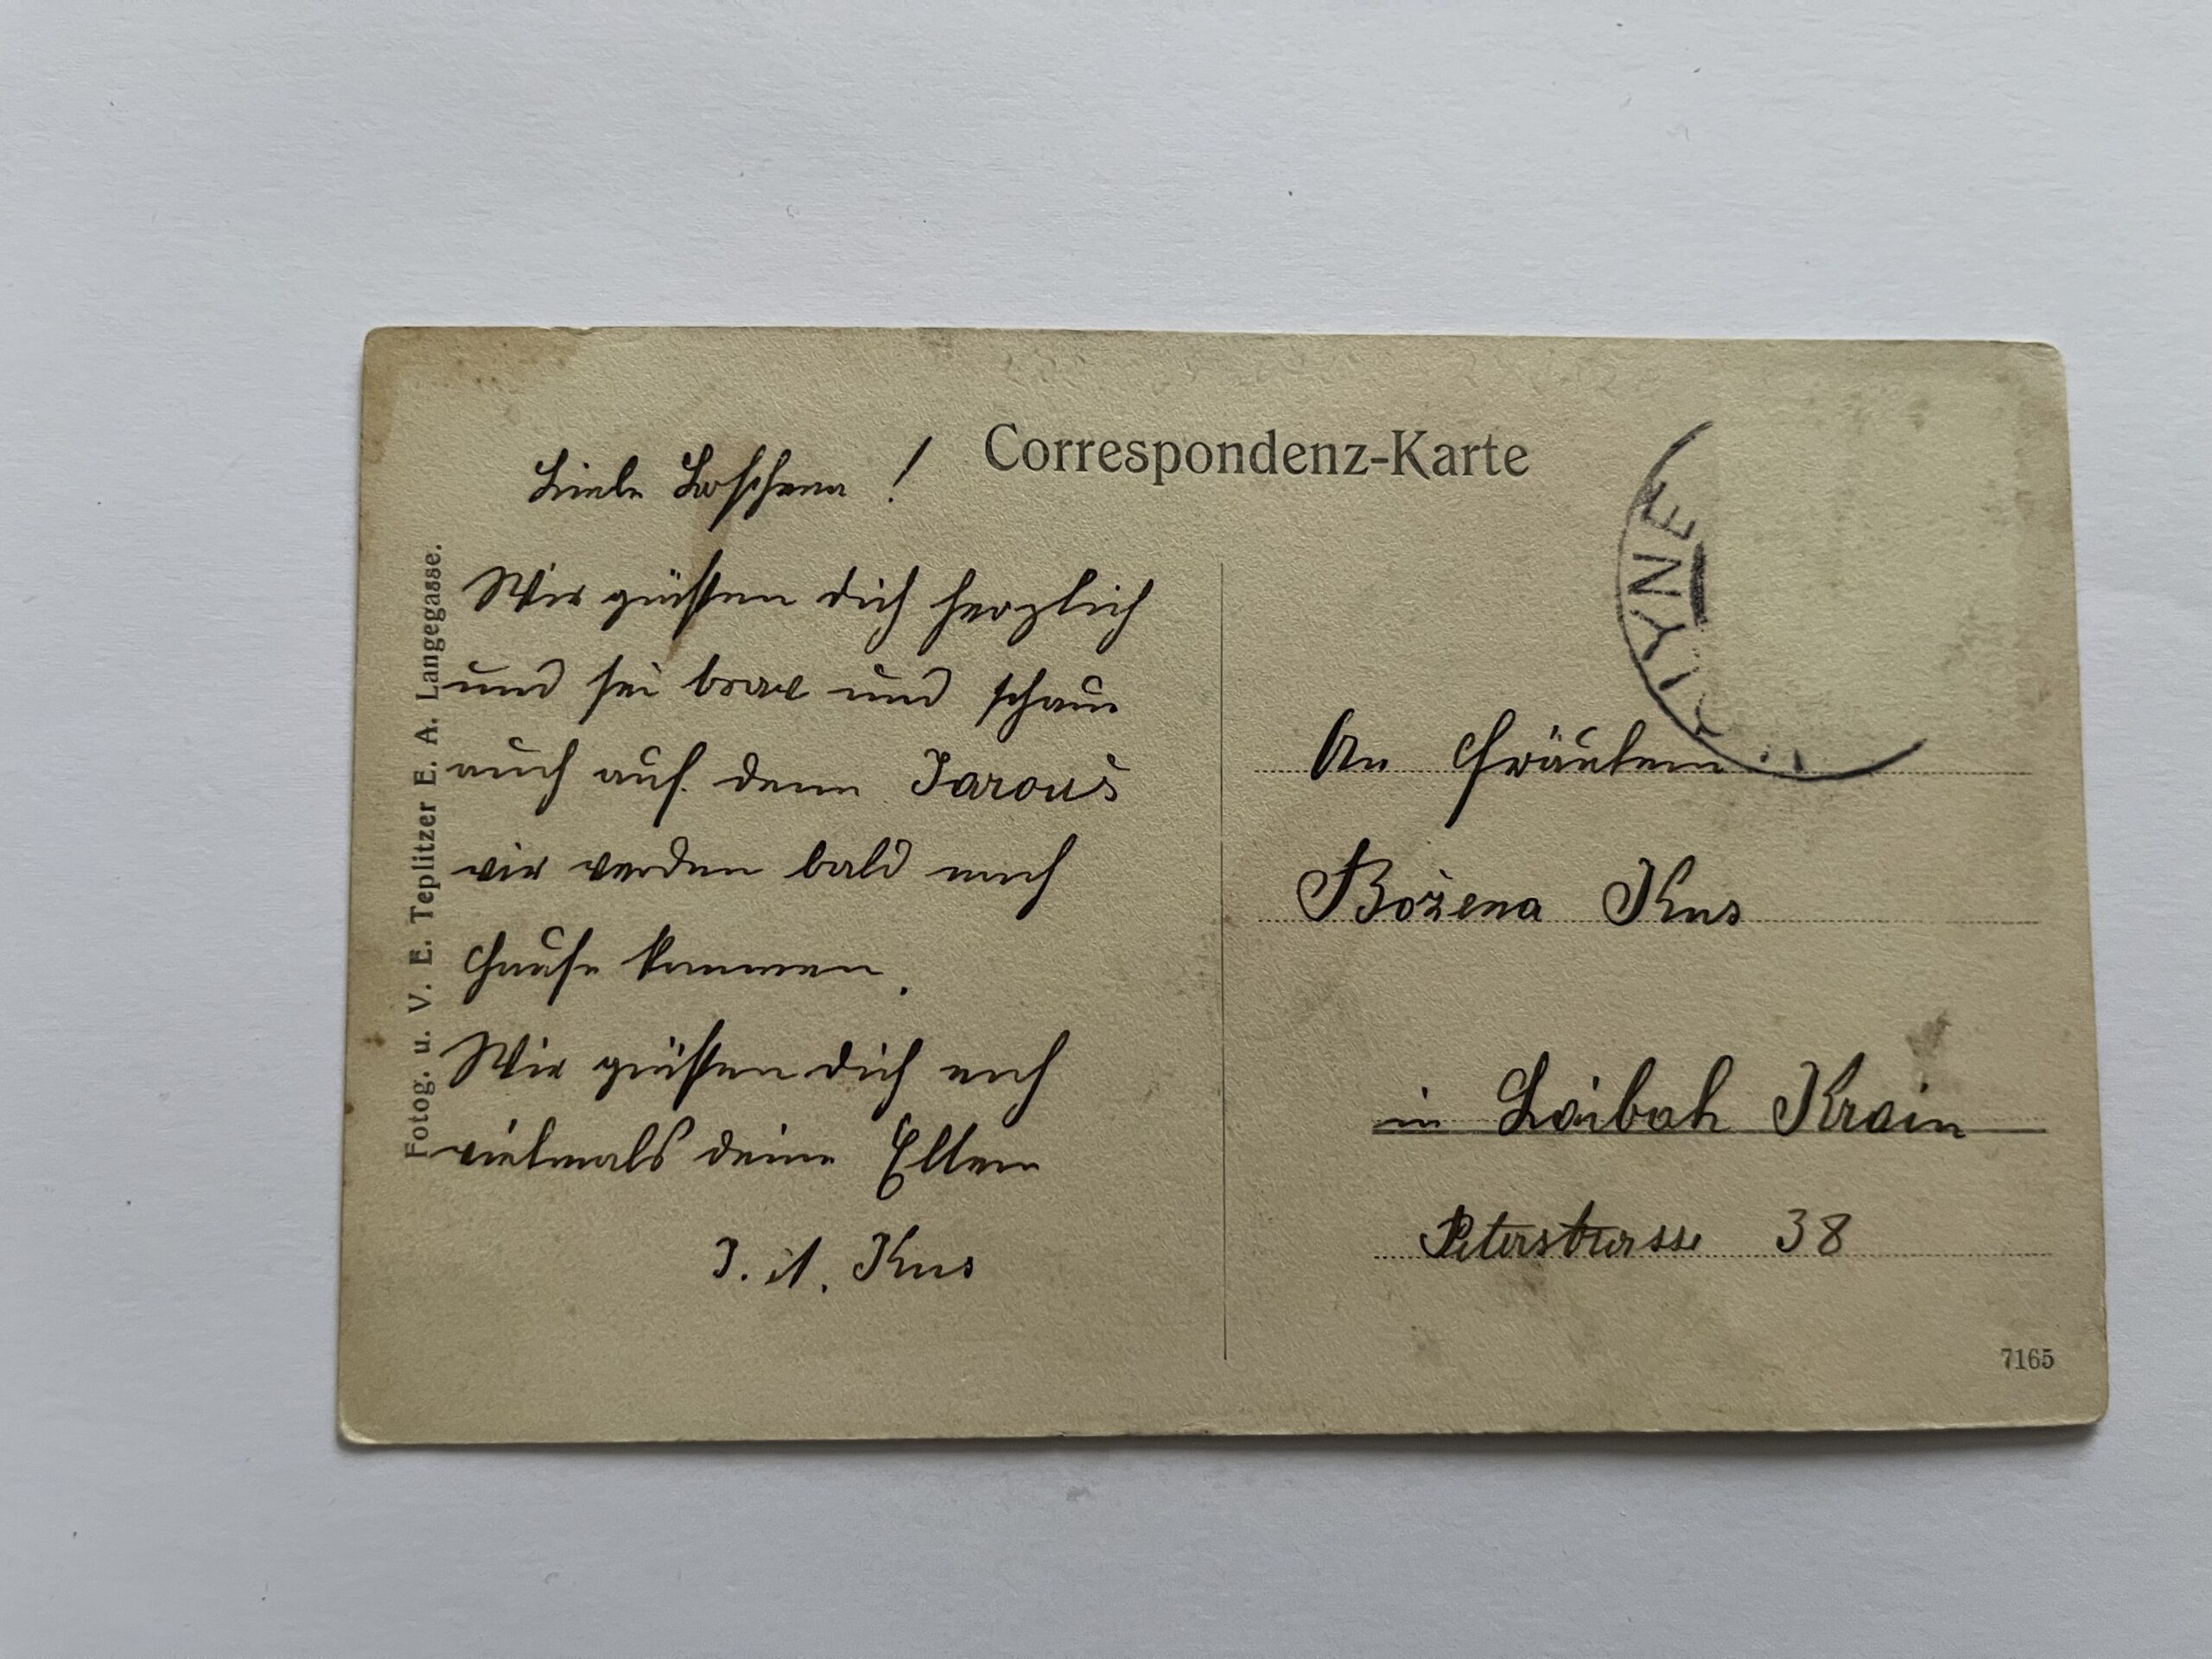 Correspondenz-Karte
Liebe Boschena !
Wir grüssen dich herzlich
und sei brav und schaue
auch auf denn Jarouš
wir werden bald nach
Hause kommen.
Wir grüssen dich noch
vielmals deine Eltern
J. A. Kus
Fotog. u. V. E. Teplitzer E. A. Langegasse.
An Fräulein
Božena Kus
in Laibah Krain
Petersstrasse 38
7165